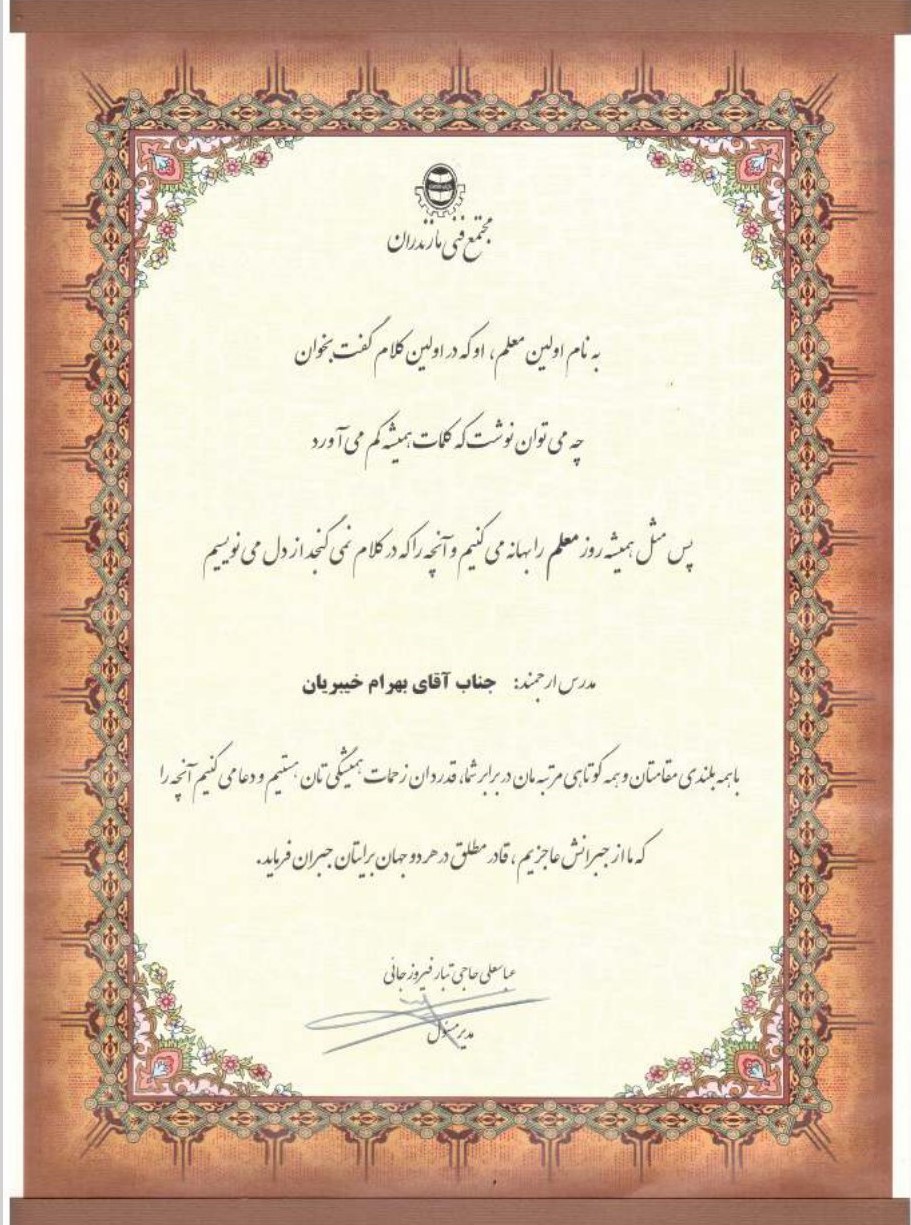 مجتمع فنی مازندران
به نام اولین معلم، او که در اولین کلام گفت بخوان
چه می توان نوشت که کلمات همیشه کم می آورد
پس مثل همیشه روز معلم را بهانه می کنیم و آنچه را که در کلام نمی گنجد از دل می نویسیم
مدرس ارجمند: جناب آقای بهرام خیبریان
با همه بلندی مقامتان و همه کوتاهی مرتبه مان در برابر شما، قدردان زحمات همیشگی تان هستیم و دعا می کنیم آنچه را
که ما از جبرانش عاجزیم، قادر مطلق در هر دو جهان برایتان جبران فرماید.
عباسعلی حاجی تبار فیروزجائی
مدیر مسئول